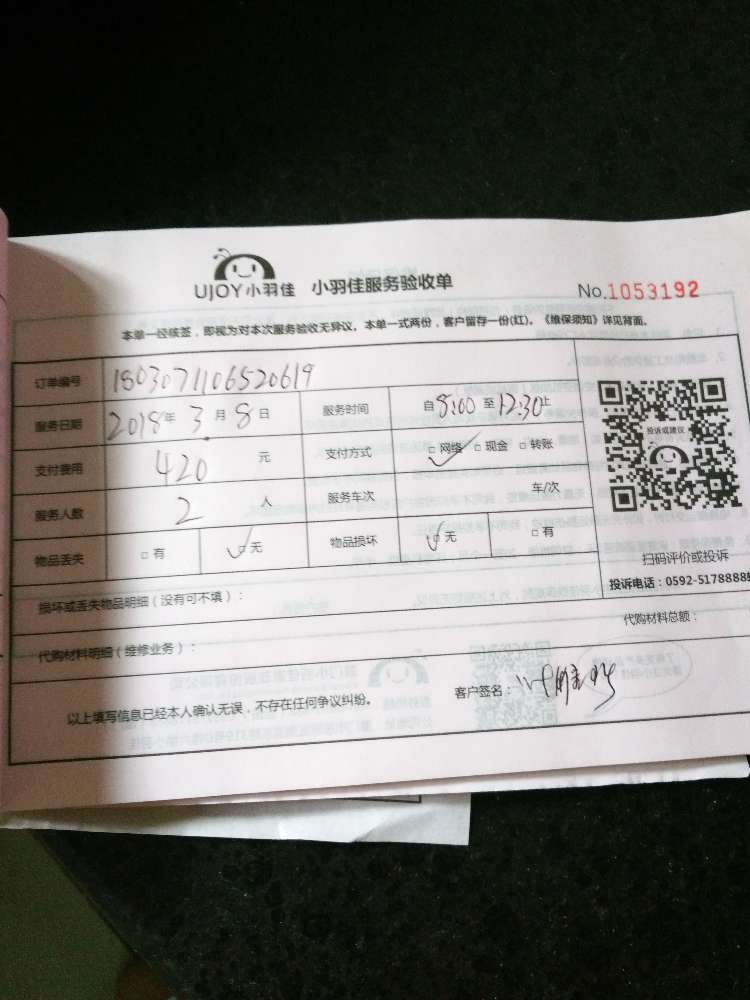 UJOY小羽佳 小羽佳服务验收单 No.1053192
本单一经核签，即视为对本次服务验收无异议。本单一式两份，客户留存一份(红)。《维保须知》详见背面。
订单编号 1803071106520619
服务日期 2018年 3.月 8日 服务时间 自8:00至12:30止
支付费用 420 元 支付方式 □网络 □现金 □转账
服务人数 2 人 服务车次 车/次
物品丢失 □有 □无 物品损坏 □无 □有
投诉或建议
扫码评价或投诉
投诉电话：0592-5178888
损坏或丢失物品明细（没有可不填）：
代购材料明细（维修业务）： 代购材料总额：
以上填写信息已经本人确认无误，不存在任何争议纠纷。 客户签名：